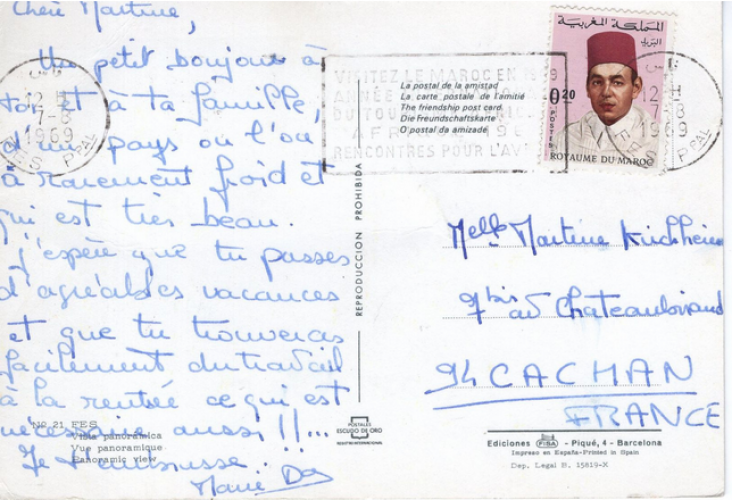 Chère Martine,
Un petit bonjour à
toi et à ta famille,
d'un pays où l'on
a rarement froid et
qui est très beau.
J'espère que tu passes
d'agréables vacances
et que tu trouveras
facilement du travail
à la rentrée ce qui est
nécessaire aussi !!...
Je t'embrasse
Marie
No 21 FES
Vista panorámica
Vue panoramique
Panoramic view
REPRODUCCION PROHIBIDA
POSTALES
ESCUDO DE ORO
12 H
7-8
1969
FES PPAL
VISITEZ LE MAROC EN 1969
ANNÉE
DU TOU
AFR
RENCONTRES POUR L'AV
La postal de la amistad
La carte postale de l'amitié
The friendship post card
Die Freundschaftskarte
O postal da amizade
المملكة المغربية
البريد
0.20
POSTES
ROYAUME DU MAROC
12 H
7-8
1969
PPAL
Melle Martine Kirchheim
9bis av Chateaubriand
94 CACHAN
FRANCE
Ediciones FISA - Piqué, 4 - Barcelona
Impreso en España-Printed in Spain
Dep. Legal B. 15819-X